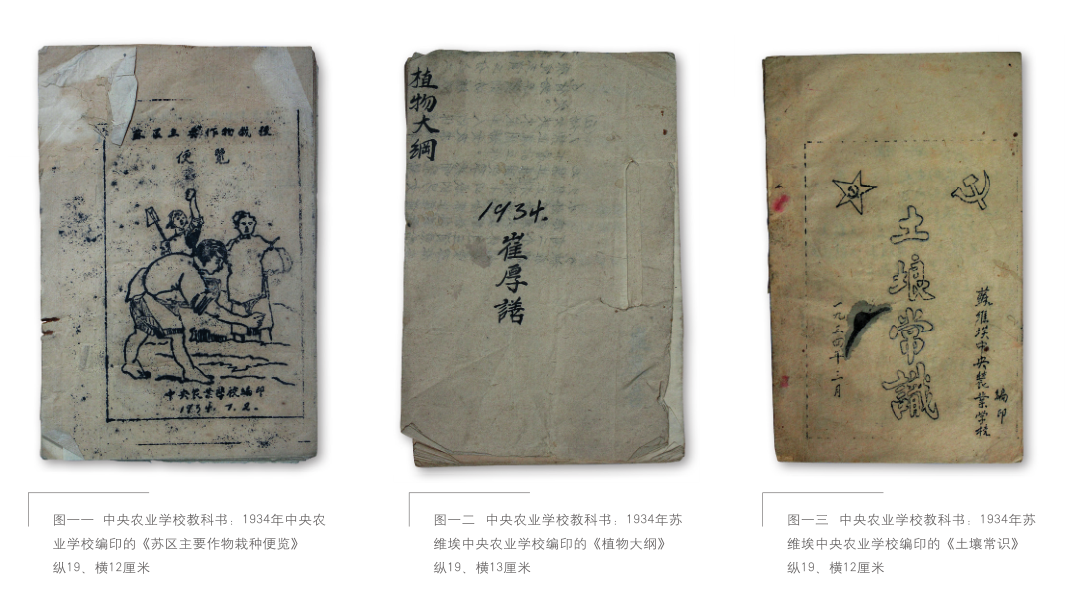 蘇區主要作物栽種
便覽
中央農業學校編印
1934.7.2.
植物大綱
1934.
崔厚譜
土壤常識
一九三四年十二月
蘇維埃中央農業学校
編印
图一一 中央农业学校教科书：1934年中央农
业学校编印的《苏区主要作物栽种便览》
纵19、横12厘米
图一二 中央农业学校教科书：1934年苏
维埃中央农业学校编印的《植物大纲》
纵19、横13厘米
图一三 中央农业学校教科书：1934年苏
维埃中央农业学校编印的《土壤常识》
纵19、横12厘米